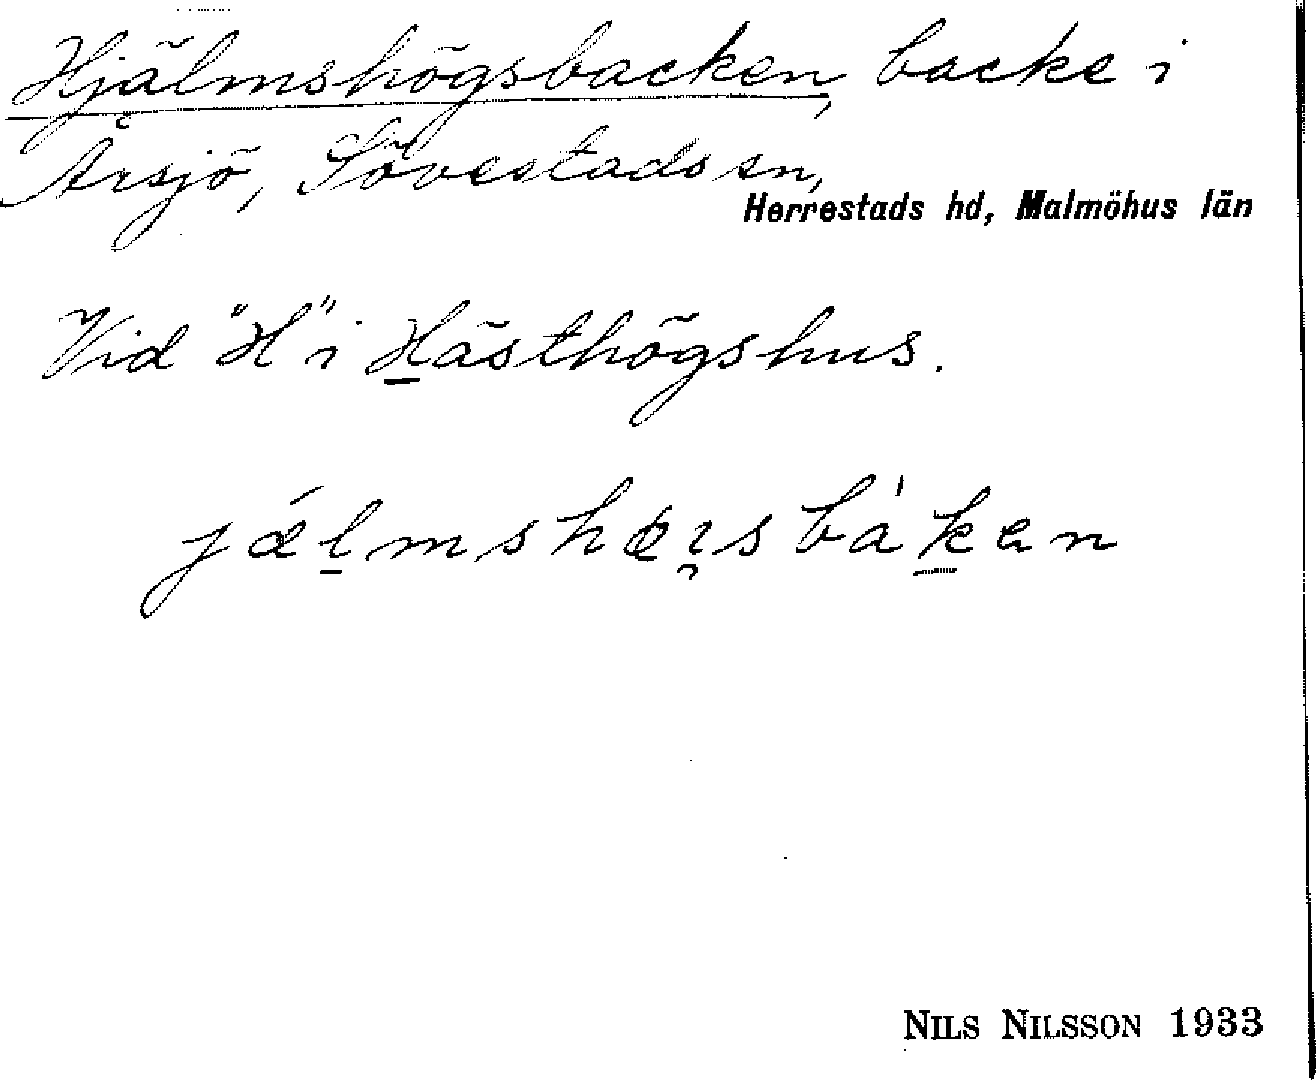 Hjälmshögsbacken, backe i
Årsjö, Sövestads sn,
Herrestads hd, Malmöhus län
Vid "H" i Hästhögshus.
jǽlmshøi̯sbàken
NILS NILSSON 1933